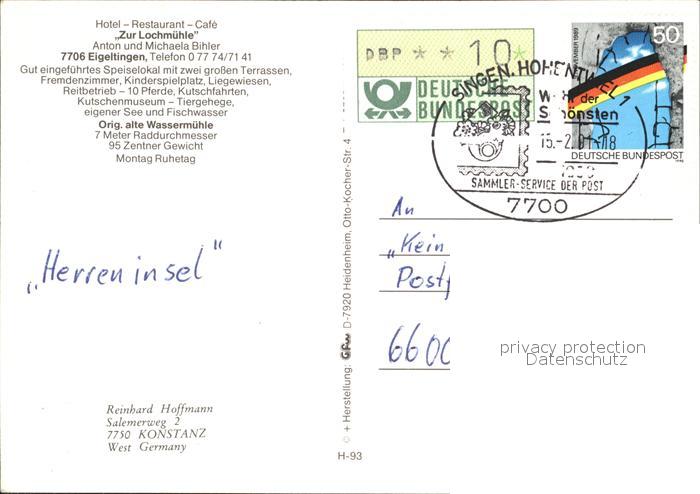 Hotel – Restaurant – Café
„Zur Lochmühle"
Anton und Michaela Bihler
7706 Eigeltingen, Telefon 0 77 74/71 41
Gut eingeführtes Speiselokal mit zwei großen Terrassen,
Fremdenzimmer, Kinderspielplatz, Liegewiesen,
Reitbetrieb – 10 Pferde, Kutschfahrten,
Kutschenmuseum – Tiergehege,
eigener See und Fischwasser
Orig. alte Wassermühle
7 Meter Raddurchmesser
95 Zentner Gewicht
Montag Ruhetag
„Herreninsel"
Reinhard Hoffmann
Salemerweg 2
7750 KONSTANZ
West Germany
+ Herstellung: D-7920 Heidenheim, Otto-Kocher-Str. 4
H-93
DBP * * 10*
DEUTSCHE
BUNDESPOST
50
NOVEMBER 1989
DEUTSCHE BUNDESPOST
SINGEN, HOHENTWIEL 1
der
Schönsten
15.-2. 91-18
SAMMLER-SERVICE DER POST
7700
An
„Kein
Post
6600
privacy protection
Datenschutz